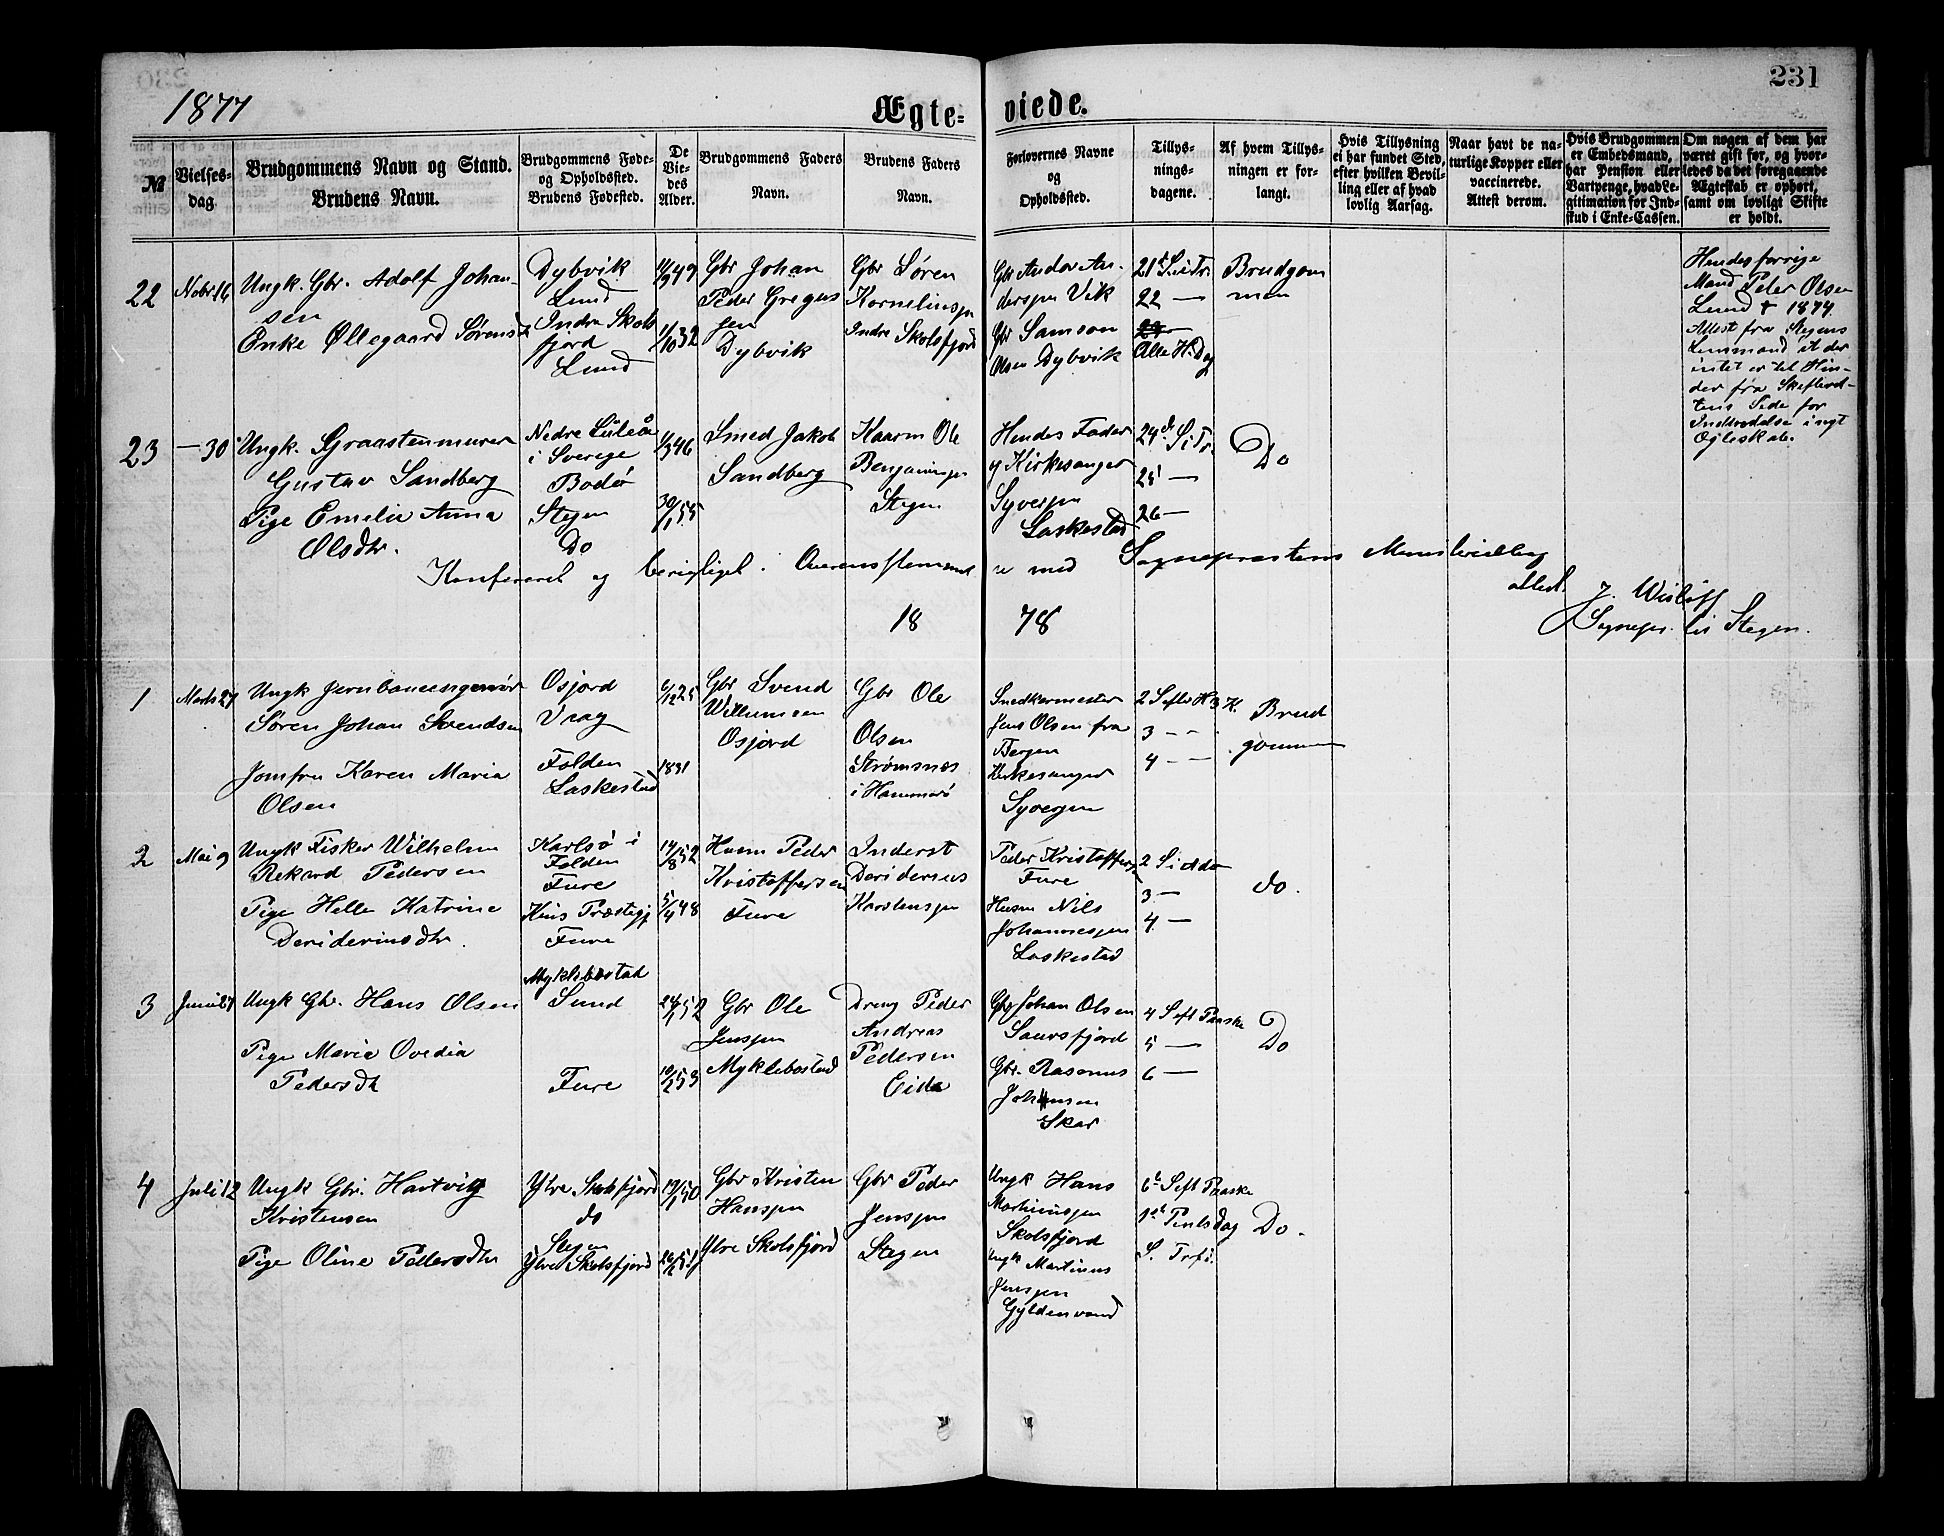 231
1877
Ægte-
viede.
№
Vielses-
dag.
Brudgommens Navn og Stand.
Brudens Navn.
Brudgommens Føde-
og Opholdssted.
Brudens Fødested.
De
Vie-
des
Alder.
Brudgommens Faders
Navn.
Brudens Faders
Navn.
Forlovernes Navne
og
Opholdssted.
Tillys-
nings-
dagene.
Af hvem Tillys-
ningen er for-
langt.
Hvis Tillysning
ei har fundet Sted,
efter hvilken Bevil-
ling eller af hvad
lovlig Aarsag.
Naar havt de na-
turlige Kopper eller
vaccinerede.
Attest derom.
Hvis Brudgommen
er Embedsmand,
har Pension eller
Vartpenge, hvad Le-
gitimation for Ind-
skud i Enke-Cassen.
Om nogen af dem har
været gift før, og hvor-
ledes da det foregaaende
Ægteskab er ophørt,
samt om lovligt Skifte
er holdt.
22
Nobr 16
Ungk. Gbr. Adolf Johan-
sen
Enke Øllegaard Sørensd
Dybvik
Lund
Indre Skols
fjord
Lund
11/9 49
1/10 32
Gbr Johan
Peder Gregus
sen
Dybvik
Gbr Søren
Korneliussen
Indre Skolsfjord
Gbr Andor An-
dersen Vik
Gbr Samson
Olsen Dybvik
21de S e Tr.
22 —
Alle H. Dag
Brudgom
men
Hendes forrige
Mand Peter Olsen
Lund † 1874.
Attest fra Stegens
Lensmand at der
intet er til Hin-
der fra Skifteret-
tens Side for
Indtrædelse i nyt
Egteskab.
23
— 30
Ungk. Graastenmurer
Gustav Sandberg
Pige Emelie Anna
Olsdtr.
Nedre Luleå
i Sverige
Bodø
Stegen
Do
1/3 46
30/1 55
Smed Jakob
Sandberg
Kaarm Ole
Benjaminsen
Stegen
Hendes Fader
og Kirkesanger
Syversen
Laskestad
24de S e Tr.
25 —
26 —
Do
Konfereret og berigtiget i Overensstemmelse med Sognepræstens Ministerialbog
attest.
J. Wisløff
Sognepr. til Stegen.
18 78
1
Marts 27
Ungk Jernbaneingeniør
Søren Johan Svendsen
Jomfru Karen Maria
Olsen
Osjord
Vrag
Folden
Laskestad
6/12 25
1831
Gbr Svend
Willumsen
Osjord
Gbr Ole
Olsen
Strømsnes
i Hammerø
Snedkermester
Jens Olsen fra
Bergen
Kirkesanger
Syversen
2 S efter H 3 K.
3 - -
4 - -
Brud
gommen
2
Mai 9
Ungk Fisker Wilhelm
Rekard Pedersen
Pige Helle Katrine
Deriderinsdtr.
Karlsø i
Folden
Fure
Kins Præstegj
Fure
14/8 52
5/4 48
Husm Peder
Kristoffersen
Fure
Inderst
Deridersus
Karstensen
Peder Kristoffers
Fure
Husm Nils
Johannessen
Laskestad
2 S i ddo
3 —
4 —
do.
3
Juni 27
Ungk Gbr. Hans Olsen
Pige Maria Ovedia
Pedersdt
Myklebostad
Sund
Fure
24/1 52
10/2 53
Gbr Ole
Jensen
Myklebostad
Dreng Peder
Andreas
Pedersen
Eide
Gbr Johan Olsen
Saursfjord
Gbr. Rasmus
Johansen
Skar
4 S eft Paaske
5 —
6 —
Do
4
Juli 12
Ungk Gbr. Hartvig
Kristensen
Pige Oline Pedersdtr
Ytre Skolsfjord
do
Stegen
Ytre Skolsfjord
19/1 50
26/12 51
Gbr Kristen
Hansen
Ytre Skolsfjord
Gbr Peder
Jensen
Stegen
Ungk Hans
Martinussen
Skolsfjord
Ungk Martinus
Jensen
Gyldenvand
6te S eft Paaske
1ste Pintsdag
S. Trf.
Do.